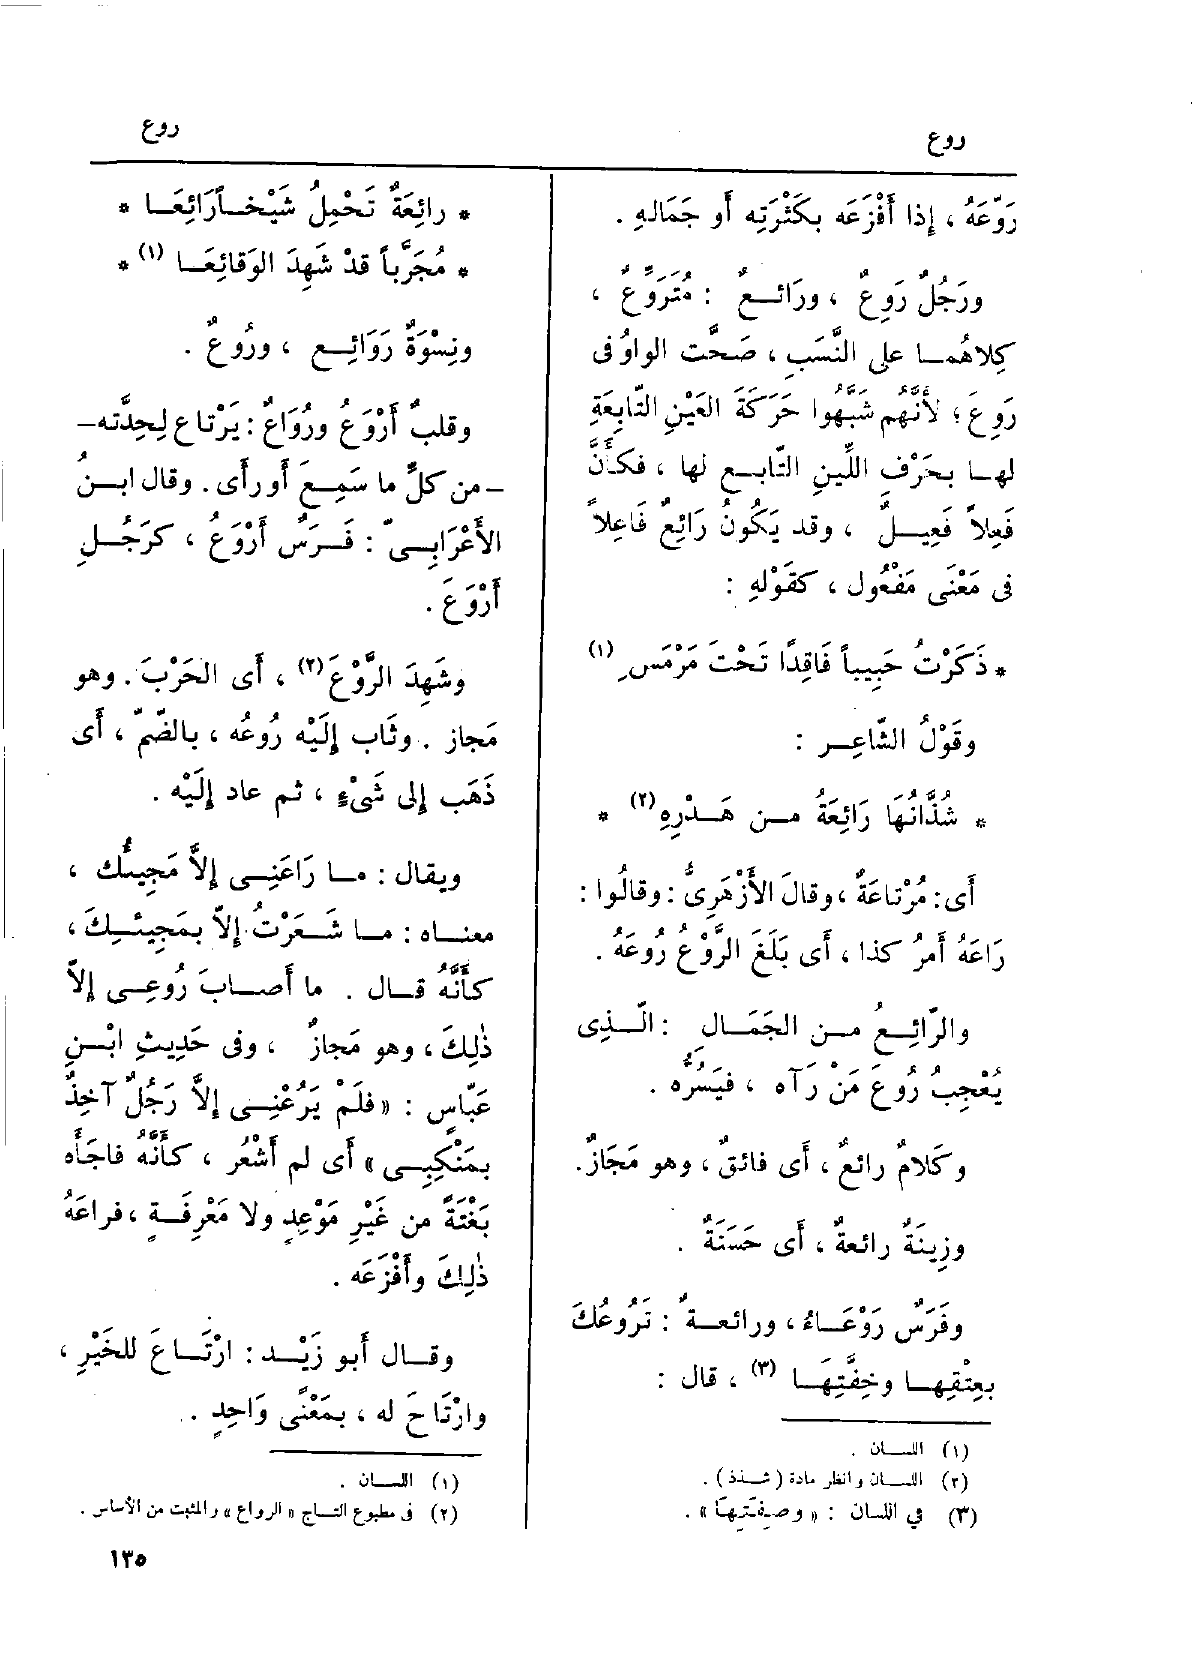 روع
روع
رَوَّعَهُ ، إِذا أَفْزَعَه بكَثْرَتِه أَو جَمَالِهِ .
ورَجُلٌ رَوِعٌ ، ورَائِـعٌ : مُتَرَوِّعٌ ،
كِلاهُمـا على النَّسَبِ ، صَحَّت الواوُ فى
رَوِعَ ؛ لأَنَّهُم شَبَّهُوا حَرَكَةَ العَيْنِ التّابِعَةِ
لهـا بحَرْفِ اللِّينِ التّابِـعِ لها ، فكأَنَّ
فَعِلاً فَعِيـلٌ ، وقد يَكُونُ رَائِعٌ فَاعِلاً
فى مَعْنَى مَفْعُول ، كقَوْلِهِ :
* ذَكَرْتُ حَبِيباً فَاقِدًا تَحْتَ مَرْمَسِ (١)
وقَوْلُ الشّاعِـر :
* شُذَّانُهَا رَائِعَةٌ مـن هَـدْرِهِ (٢) *
أَى : مُرْتاعَةٌ ، وقالَ الأَزْهَرِىُّ : وقالُوا :
رَاعَهُ أَمرُ كذا ، أَى بَلَغَ الرَّوْعُ رُوعَهُ .
والرّائِـعُ مـن الجَمَـالِ : الَّـذِى
يُعْجِبُ رُوعَ مَنْ رَآه ، فيَسُرُّه .
وكَلامٌ رائِعٌ ، أَى فائقٌ ، وهو مَجَازٌ .
وزِينَةٌ رائعةٌ ، أَى حَسَنَةٌ .
وفَرَسٌ رَوْعَـاءُ ، ورائعـةٌ : تَرُوعُكَ
بعِتْقِهـا وخِفَّتِهَـا (٣) ، قال :
(١) اللسـان .
(٢) اللسـان وانظر مادة ( شـذذ ) .
(٣) في اللسان : « وصِفَتِها » .
* رائِعَةٌ تَحْمِلُ شَيْخـاً رَائِعَـا *
* مُجَرَّباً قدْ شَهِدَ الوَقائِعَـا (١) *
ونِسْوَةٌ رَوَائِـع ، ورُوعٌ .
وقلبٌ أَرْوَعُ ورُوَاعٌ : يَرْتاع لِحِدَّته-
-من كلِّ ما سَمِـعَ أَو رأَى . وقال ابـنُ
الأَعْرَابِـىّ : فَـرَسٌ أَرْوَعُ ، كرَجُـلٍ
أَرْوَعَ .
وشَهِدَ الرَّوْعَ (٢) ، أَى الحَرْبَ . وهو
مَجاز . وثَاب إِلَيْه رُوعُه ، بالضّمّ ، أَى
ذَهَب إِلى شَىْءٍ ، ثم عاد إِلَيْه .
ويقال : مـا رَاعَنِـى إِلاَّ مَجِيئُك ،
معنـاه : مـا شَـعَرْتُ إِلاّ بمَجِيئـكَ ،
كأَنَّهُ قـال . ما أَصـابَ رُوعِـى إِلاّ
ذٰلِكَ ، وهو مَجازٌ ، وفى حَدِيثِ ابْـنِ
عَبّاسٍ : « فلَمْ يَرُعْنِـى إِلاَّ رَجُلٌ آخِذٌ
بمَنْكِبِـى » أَى لم أَشْعُر ، كأَنَّهُ فاجَأَه
بَغْتَةً من غَيْرِ مَوْعِدٍ ولا مَعْرِفَـةٍ ، فراعَهُ
ذٰلِكَ وأَفْزَعَه .
وقـال أَبو زَيْـد : ارْتَـاعَ للخَيْرِ ،
وارْتَاحَ له ، بمَعْنًى وَاحِدٍ .
(١) اللسـان .
(٢) فى مطبوع التـاج « الرواع » والمثبت من الأساس .
١٣٥